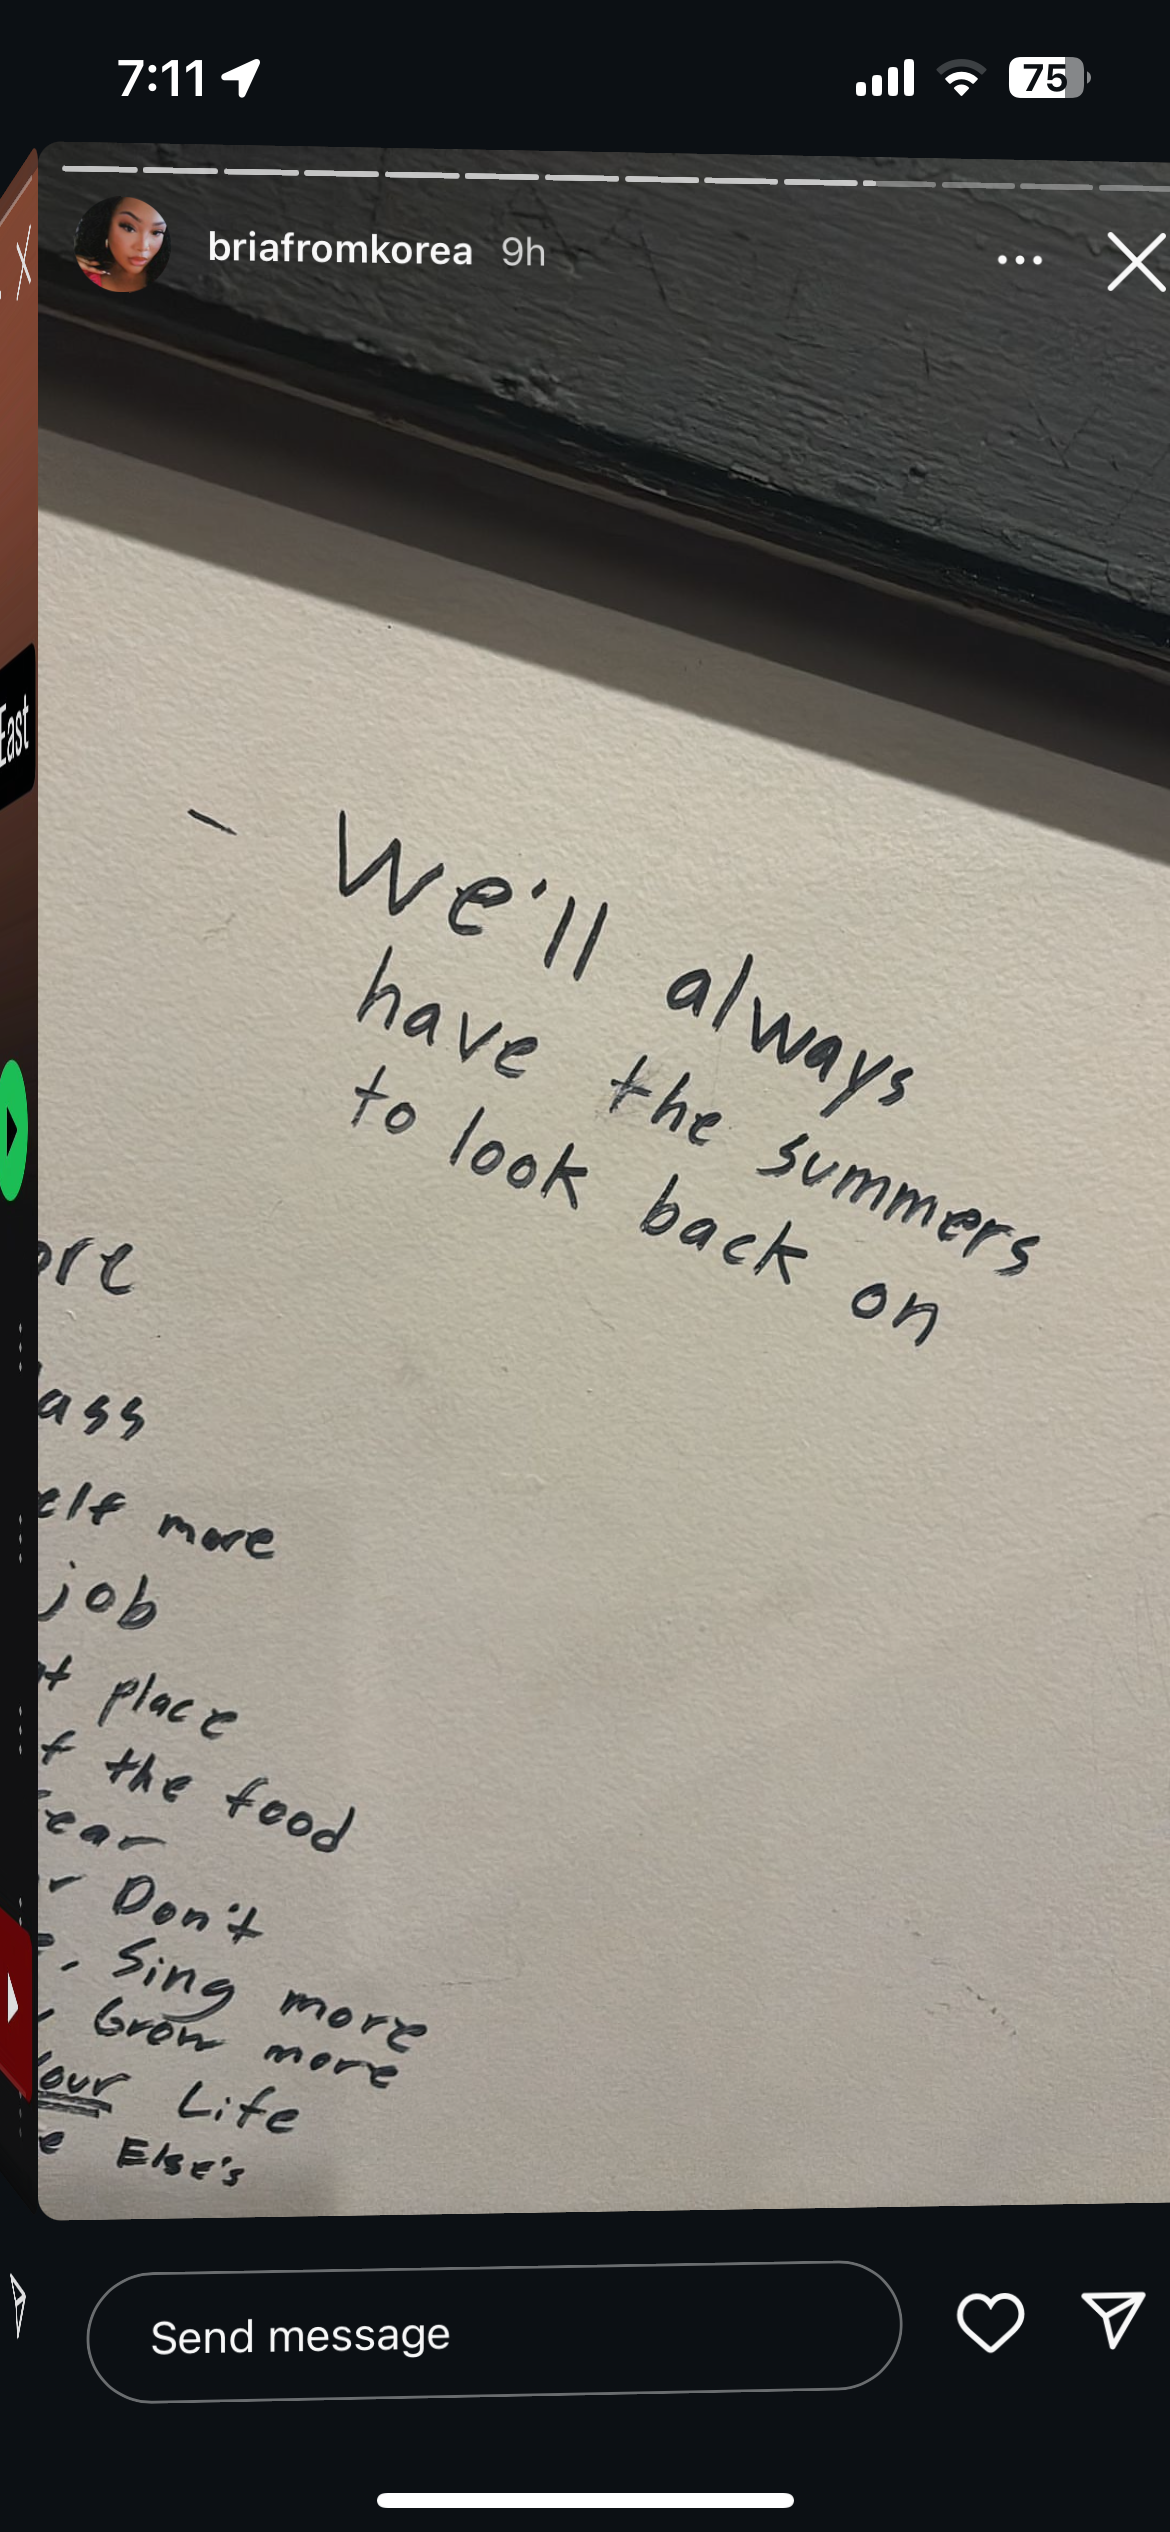 7:11
75
briafromkorea 9h
East
- We'll always
have the summers
to look back on
ore
ass
elf more
job
t place
f the food
ear
r Don't
e, Sing more
Grow more
Your Life
e Else's
Send message